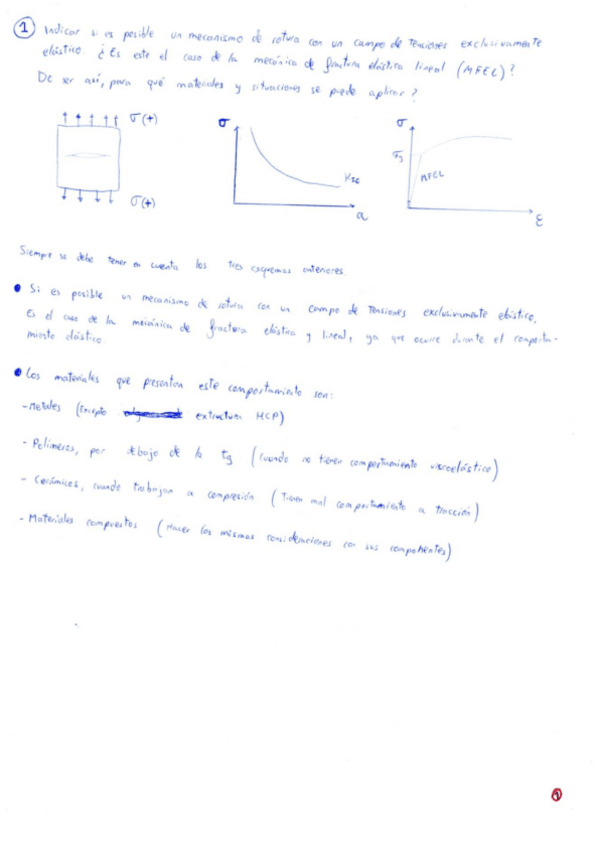 1 Indicar si es posible un mecanismo de rotura con un campo de tensiones exclusivamente
elástico. ¿Es este el caso de la mecánica de fractura elástica lineal (MFEL)?
De ser así, para qué materiales y situaciones se puede aplicar?
σ(+)
σ(+)
σ
KIC
a
σ
MFEL
ε
Siempre se debe tener en cuenta los tres esquemas anteriores.
• Si es posible un mecanismo de rotura con un campo de tensiones exclusivamente elástico.
Es el caso de la mecánica de fractura elástica y lineal, ya que ocurre durante el comporta-
miento elástico.
• Los materiales que presentan este comportamiento son:
- Metales (Excepto extructura HCP)
- Polímeros, por debajo de la tg (cuando no tienen comportamiento viscoelástico)
- Cerámicos, cuando trabajan a compresión (Tienen mal comportamiento a tracción)
- Materiales compuestos (Hacer las mismas consideraciones con sus componentes)
1